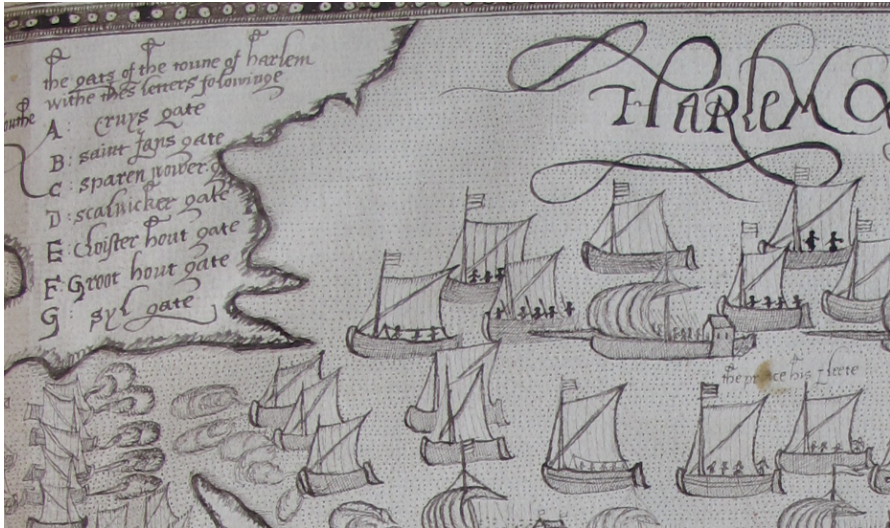 the gats of the toune of harlem
withe thes letters folowinge
A: Cruys gate
B: saint Jans gate
C: sparen wower
D: scalwicker gate
E: Cloister hout gate
F: Groot hout gate
G: syl gate
HARleM
the prince his fleete